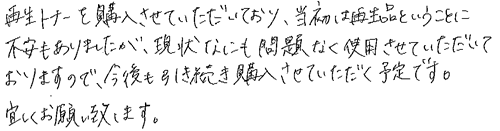 再生トナーを購入させていただいており、当初は再生品ということに
不安もありましたが、現状なにも問題なく使用させていただいて
おりますので、今後も引き続き購入させていただく予定です。
宜しくお願い致します。